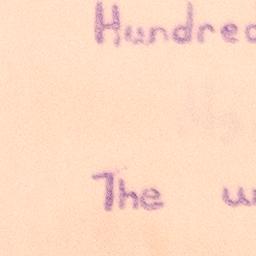 Hundred
The